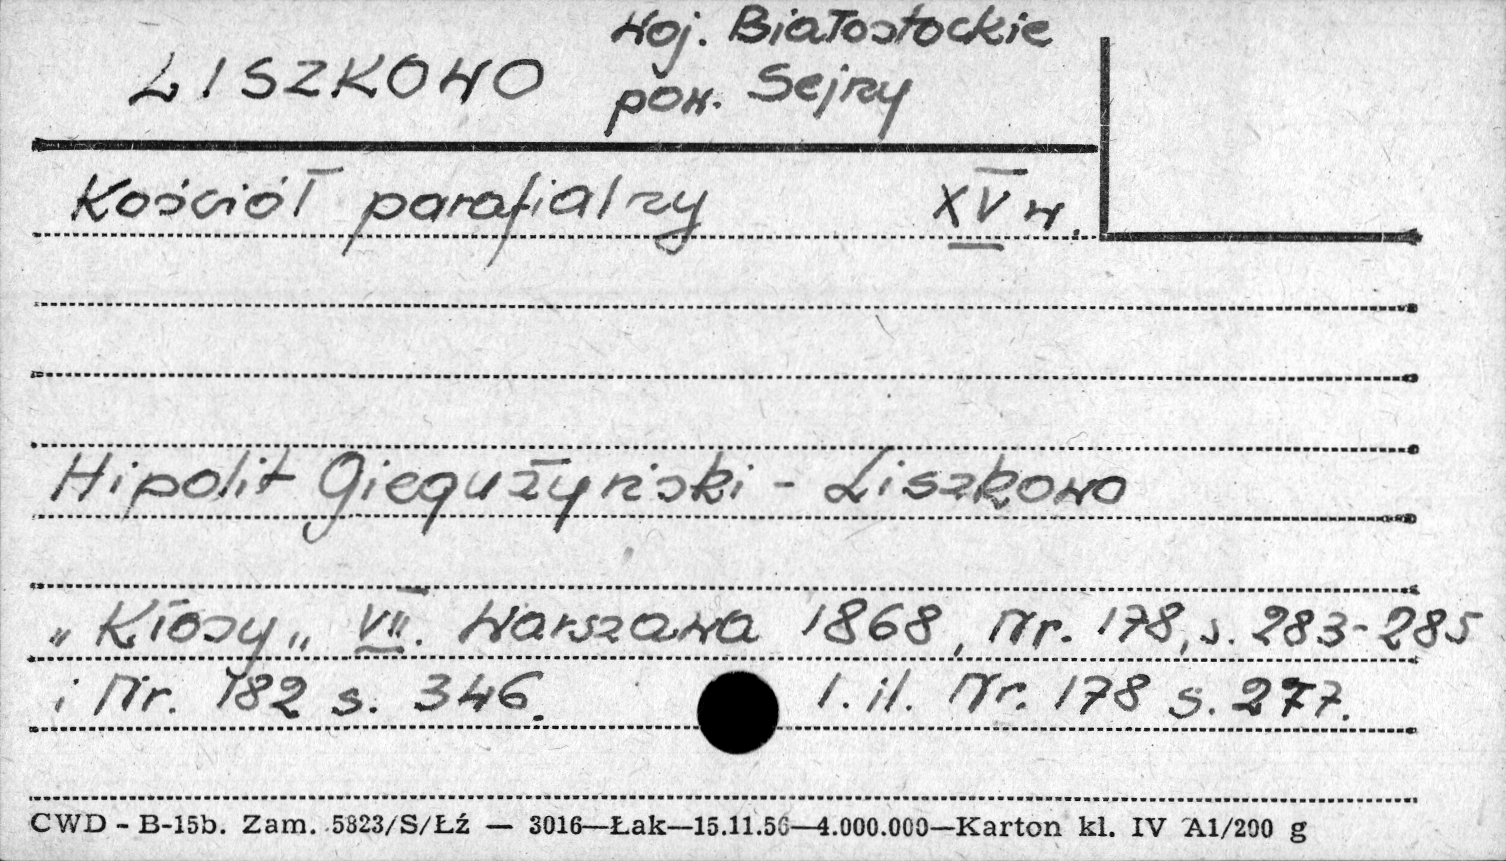 LISZKOWO woj. Białostockie
pow. Sejny
Kościół parafialny XV w.
Hipolit Giegużyński - Liszkowo
„Kłosy„ VII. Warszawa 1868, Nr. 178, s. 283-285
i Nr. 182 s. 346. 1. il. Nr. 178 s. 277.
CWD - B-15b. Zam. 5823/S/Łź — 3016—Łak—15.11.56—4.000.000—Karton kl. IV A1/200 g